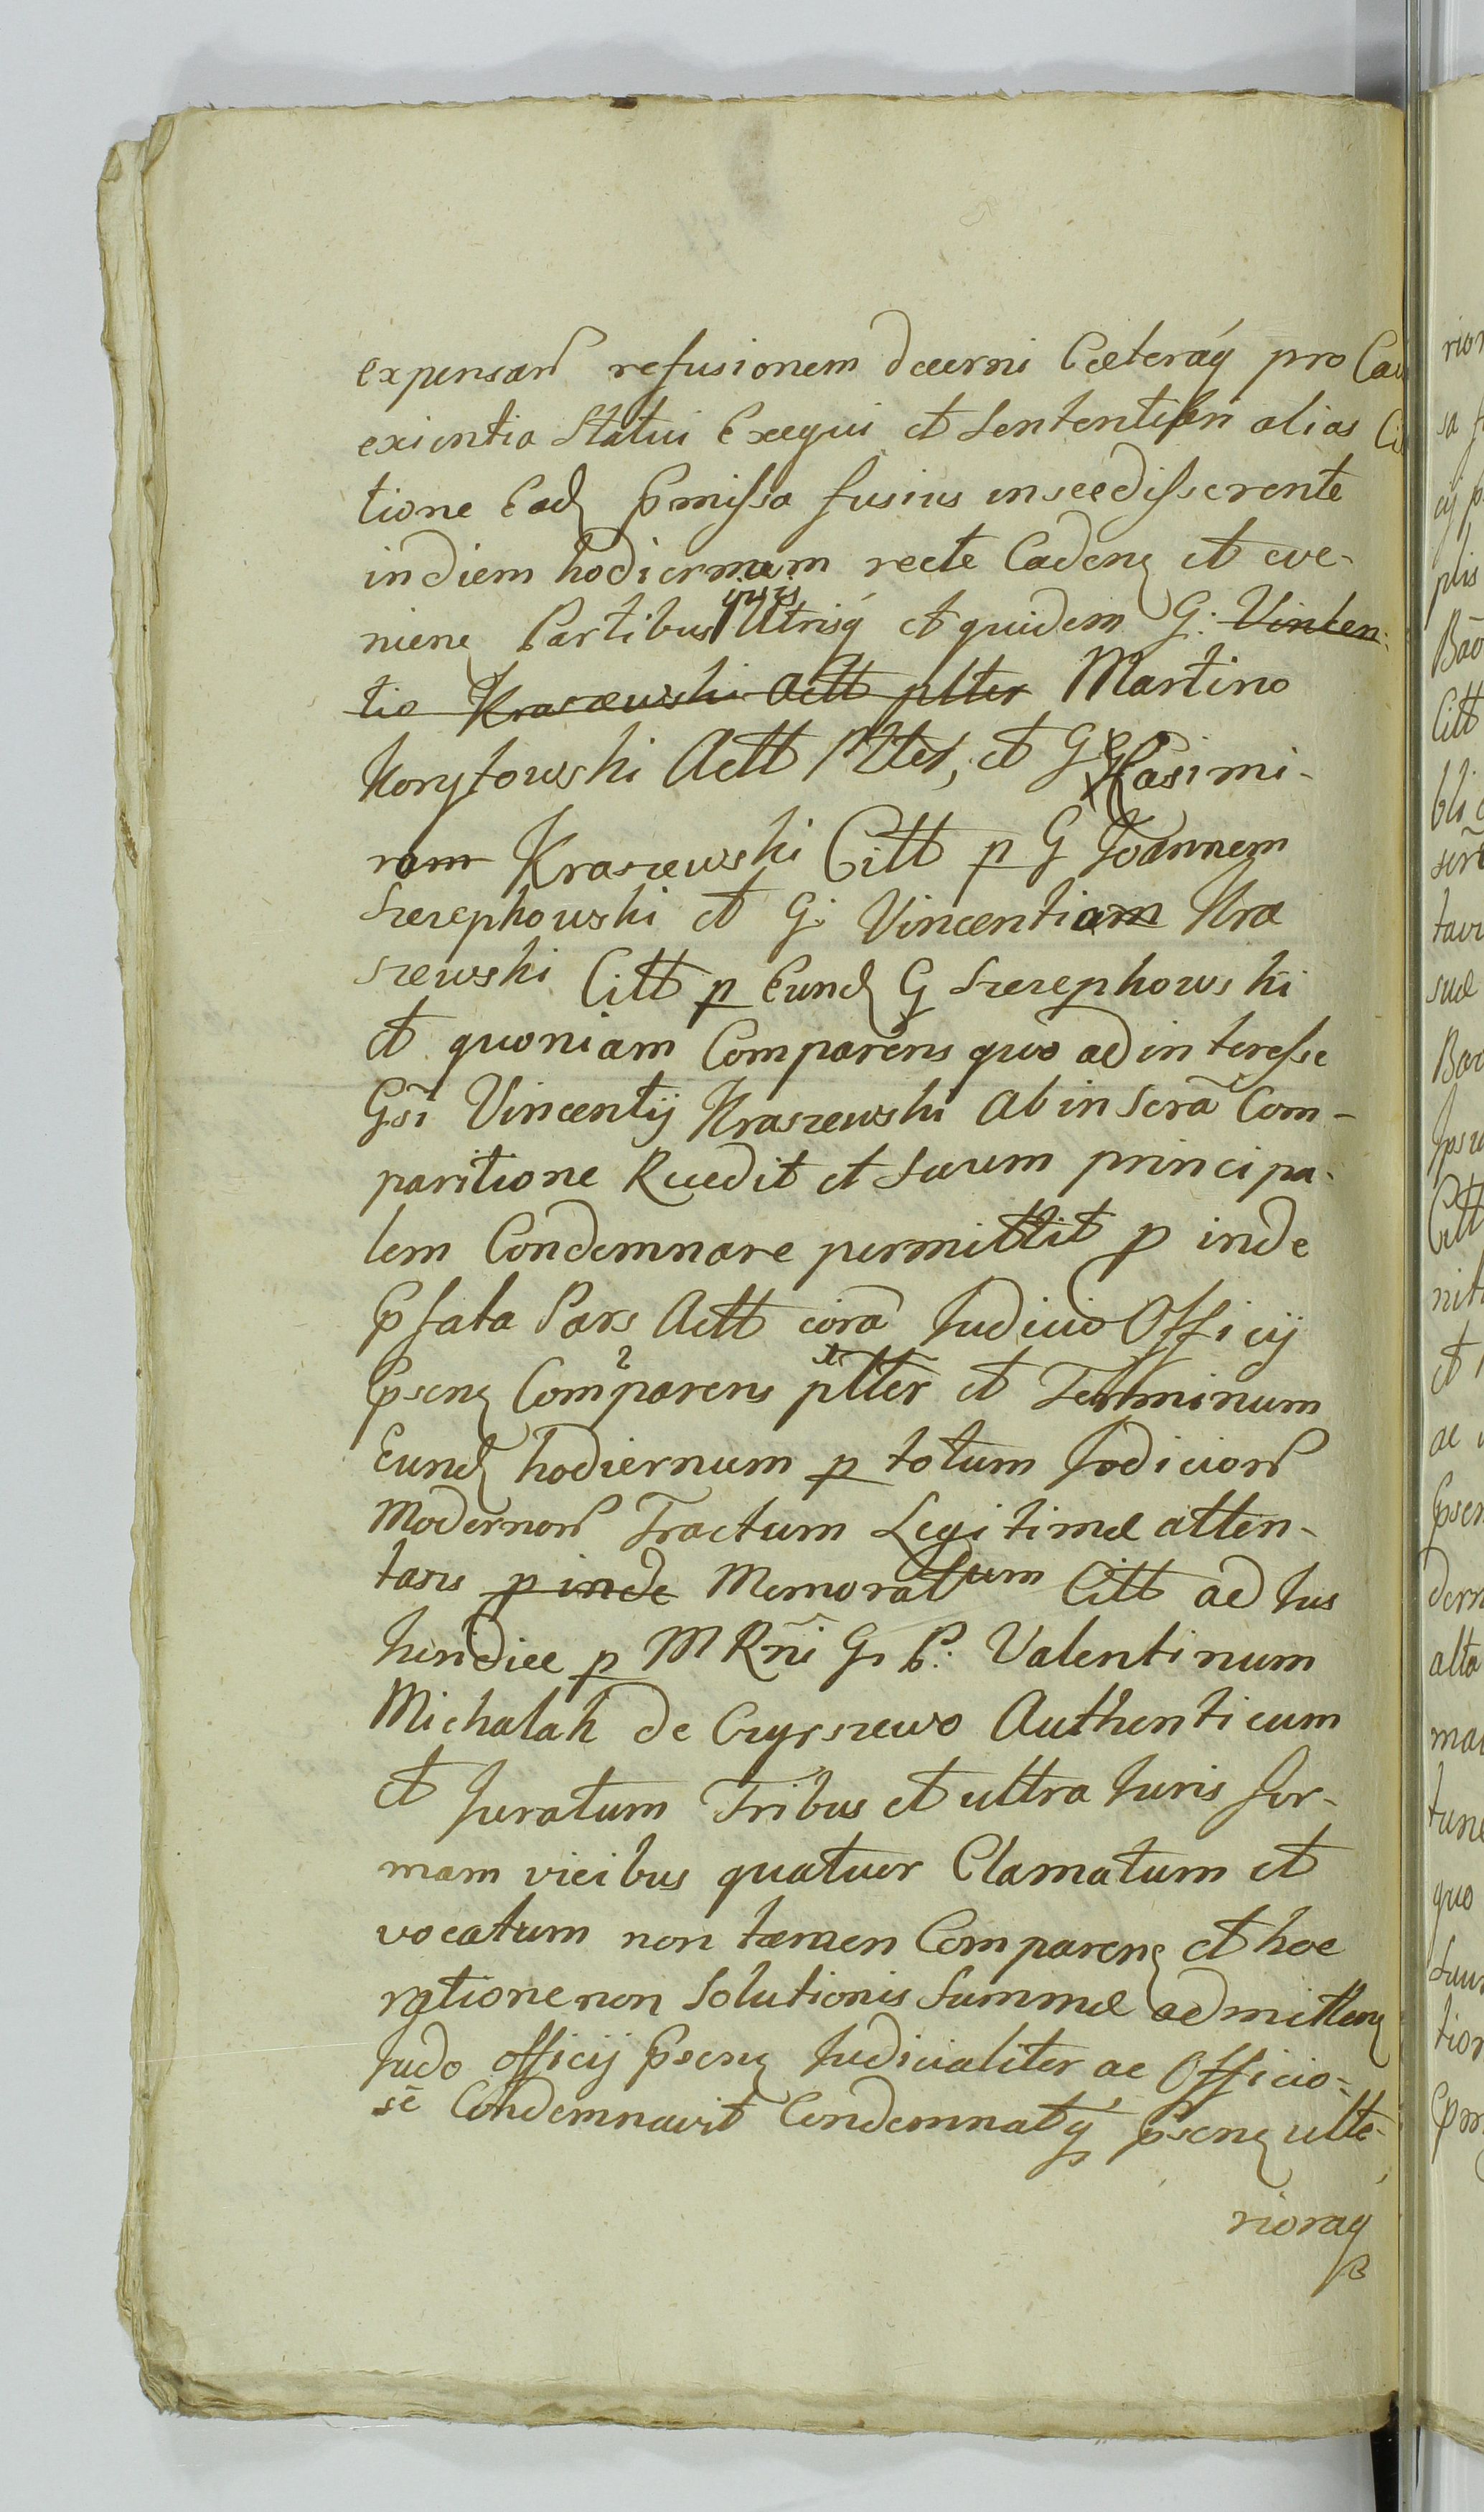 expensarũ refusionem decerni Cæteraq́ pro Cau
exientia Statui Exequi et Sententiari alias Ci
tione Ead. p̃missa fusius inse edisserente
in diem hodiernum recte Caden. et eve-
nien. Partibus ijsis Utrisq́ et quidem G: Vincen-
tio Kraszewski Actt plter Martino
Korytowski Actt Plter, et G Casimi-
rum Kraszewski Citt p G Joannem
Szczepkowski et G: Vincentium Kra
szewski Citt p Eund. G Szczepkowski
et quoniam Comparens quo ad interesse
Gsĩ Vincentij Kraszewski Ab inscrã Com-
paritione Recedit et Suum principa-
lem Condemnare permittit p inde
p̃fata Pars Actt corã Judicio Officij
p̃sen. Comparens plter et Terminum
Eund. hodiernum p totum Judiciorũ
Modernorũ Tractum Legitime atten-
tans p inde Memoratum Citt ad Jus
Juridice p M Rñi G. P: Valentinum
Michalak de Czyrszewo Authenticum
et Juratum Tribus et ultra Juris for-
mam vicibus quatuor Clamatum et
vocatum non tamen Comparen. et hoc
ratione non Solutionis Summæ admitten.
Judo officij p̃sen. Judicialiter ac Officio-
sẽ Condemnavit Condemnatq́ p̃sen. ulte-
rioraq